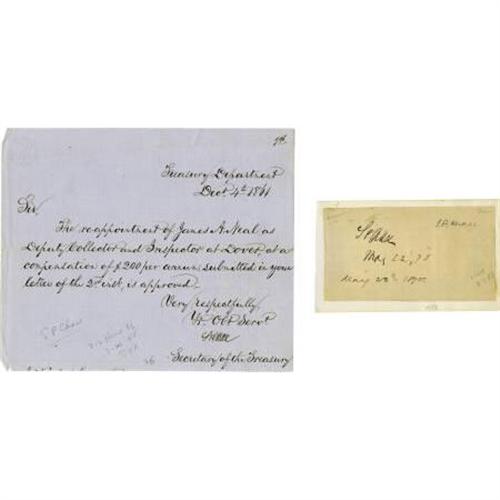 Treasury Department
Dec. 4th 1861
Sir,
The re-appointment of James A. Neal as
Deputy Collector and Inspector at Dover, at a
compensation of $200 per annum, submitted in your
letter of the 2d inst, is approved.
Very respectfully,
Yr. Obt. Servt.
SPChase
Secretary of the Treasury
S P Chase
SPChase
May 22,